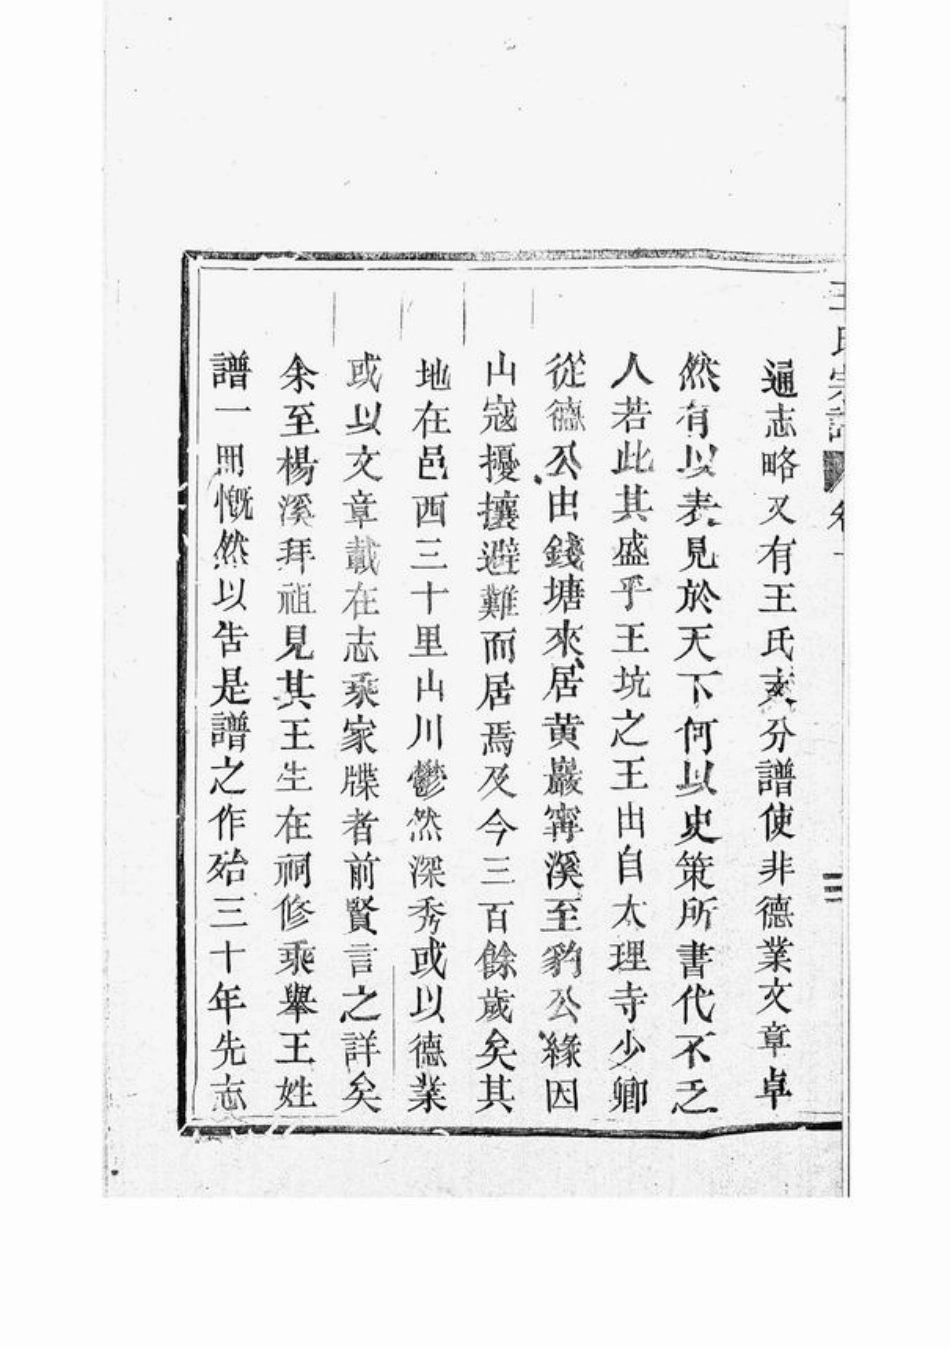 王氏宗譜 卷一 三
通志略又有王氏支分譜使非德業文章卓
然有以表見於天下何以史策所書代不乏
人若此其盛乎王坑之王出自太理寺少卿
從德公由錢塘來居黃巖寧溪至豹公緣因
山寇擾攘避難而居焉及今三百餘歲矣其
地在邑西三十里山川鬱然深秀或以德業
或以文章載在志乘家牒者前賢言之詳矣
余至楊溪拜祖見其王生在祠修乘舉王姓
譜一冊慨然以告是譜之作殆三十年先志